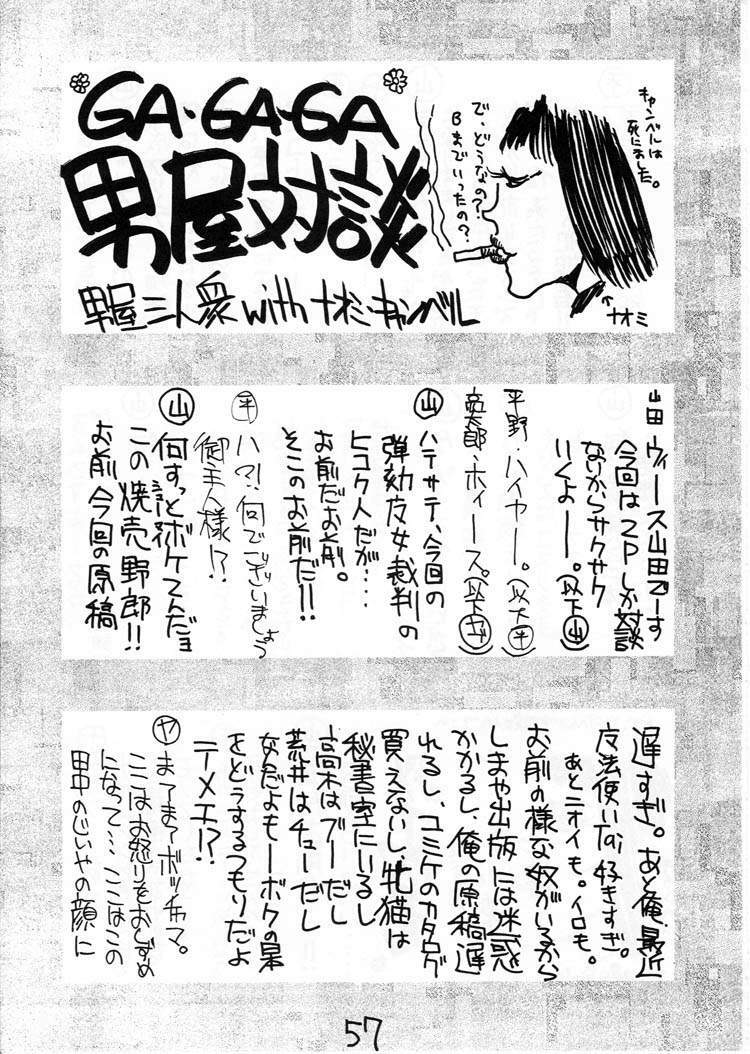 GA・GA・GA
男屋対談
男屋三人衆withナオミ・キャンベル
キャンベルは
死にました。
で、どうなの?
Bまでいったの?
ナオミ
山田 ウィース山田でーす
今回は2Pしか対談
ないからサクサク
いくよー。(以下山)
平野・ハイヤー。(以下平)
・ホィース。(以下ヤ)
山 ハテサテ、今回の
弾劾友女裁判の
ヒコク人だが‥‥
お前だお前。
そこのお前だ!!
平 ハ?!何でございましょう
御主人様!?
山 何すっとボケてんだョ
この焼売野郎!!
お前、今回の原稿
遅すぎ。あと俺、最近
友法使いTai好きすぎ。
あとニオイも。イロも。
お前の様な奴がいるから
しまや出版には迷惑
かかるし、俺の原稿遅
れるし、コミケのカタログ
買えないし、牝猫は
秘書室にいるし
高木はブーだし
荒井はチューだし
なんだよもーボクの
をどうするつもりだよ
テメエ!?
ヤ まてまてボッチャマ。
ここはお怒りをおしずめ
になって‥‥ここはこの
田中のじいやの顔に
57